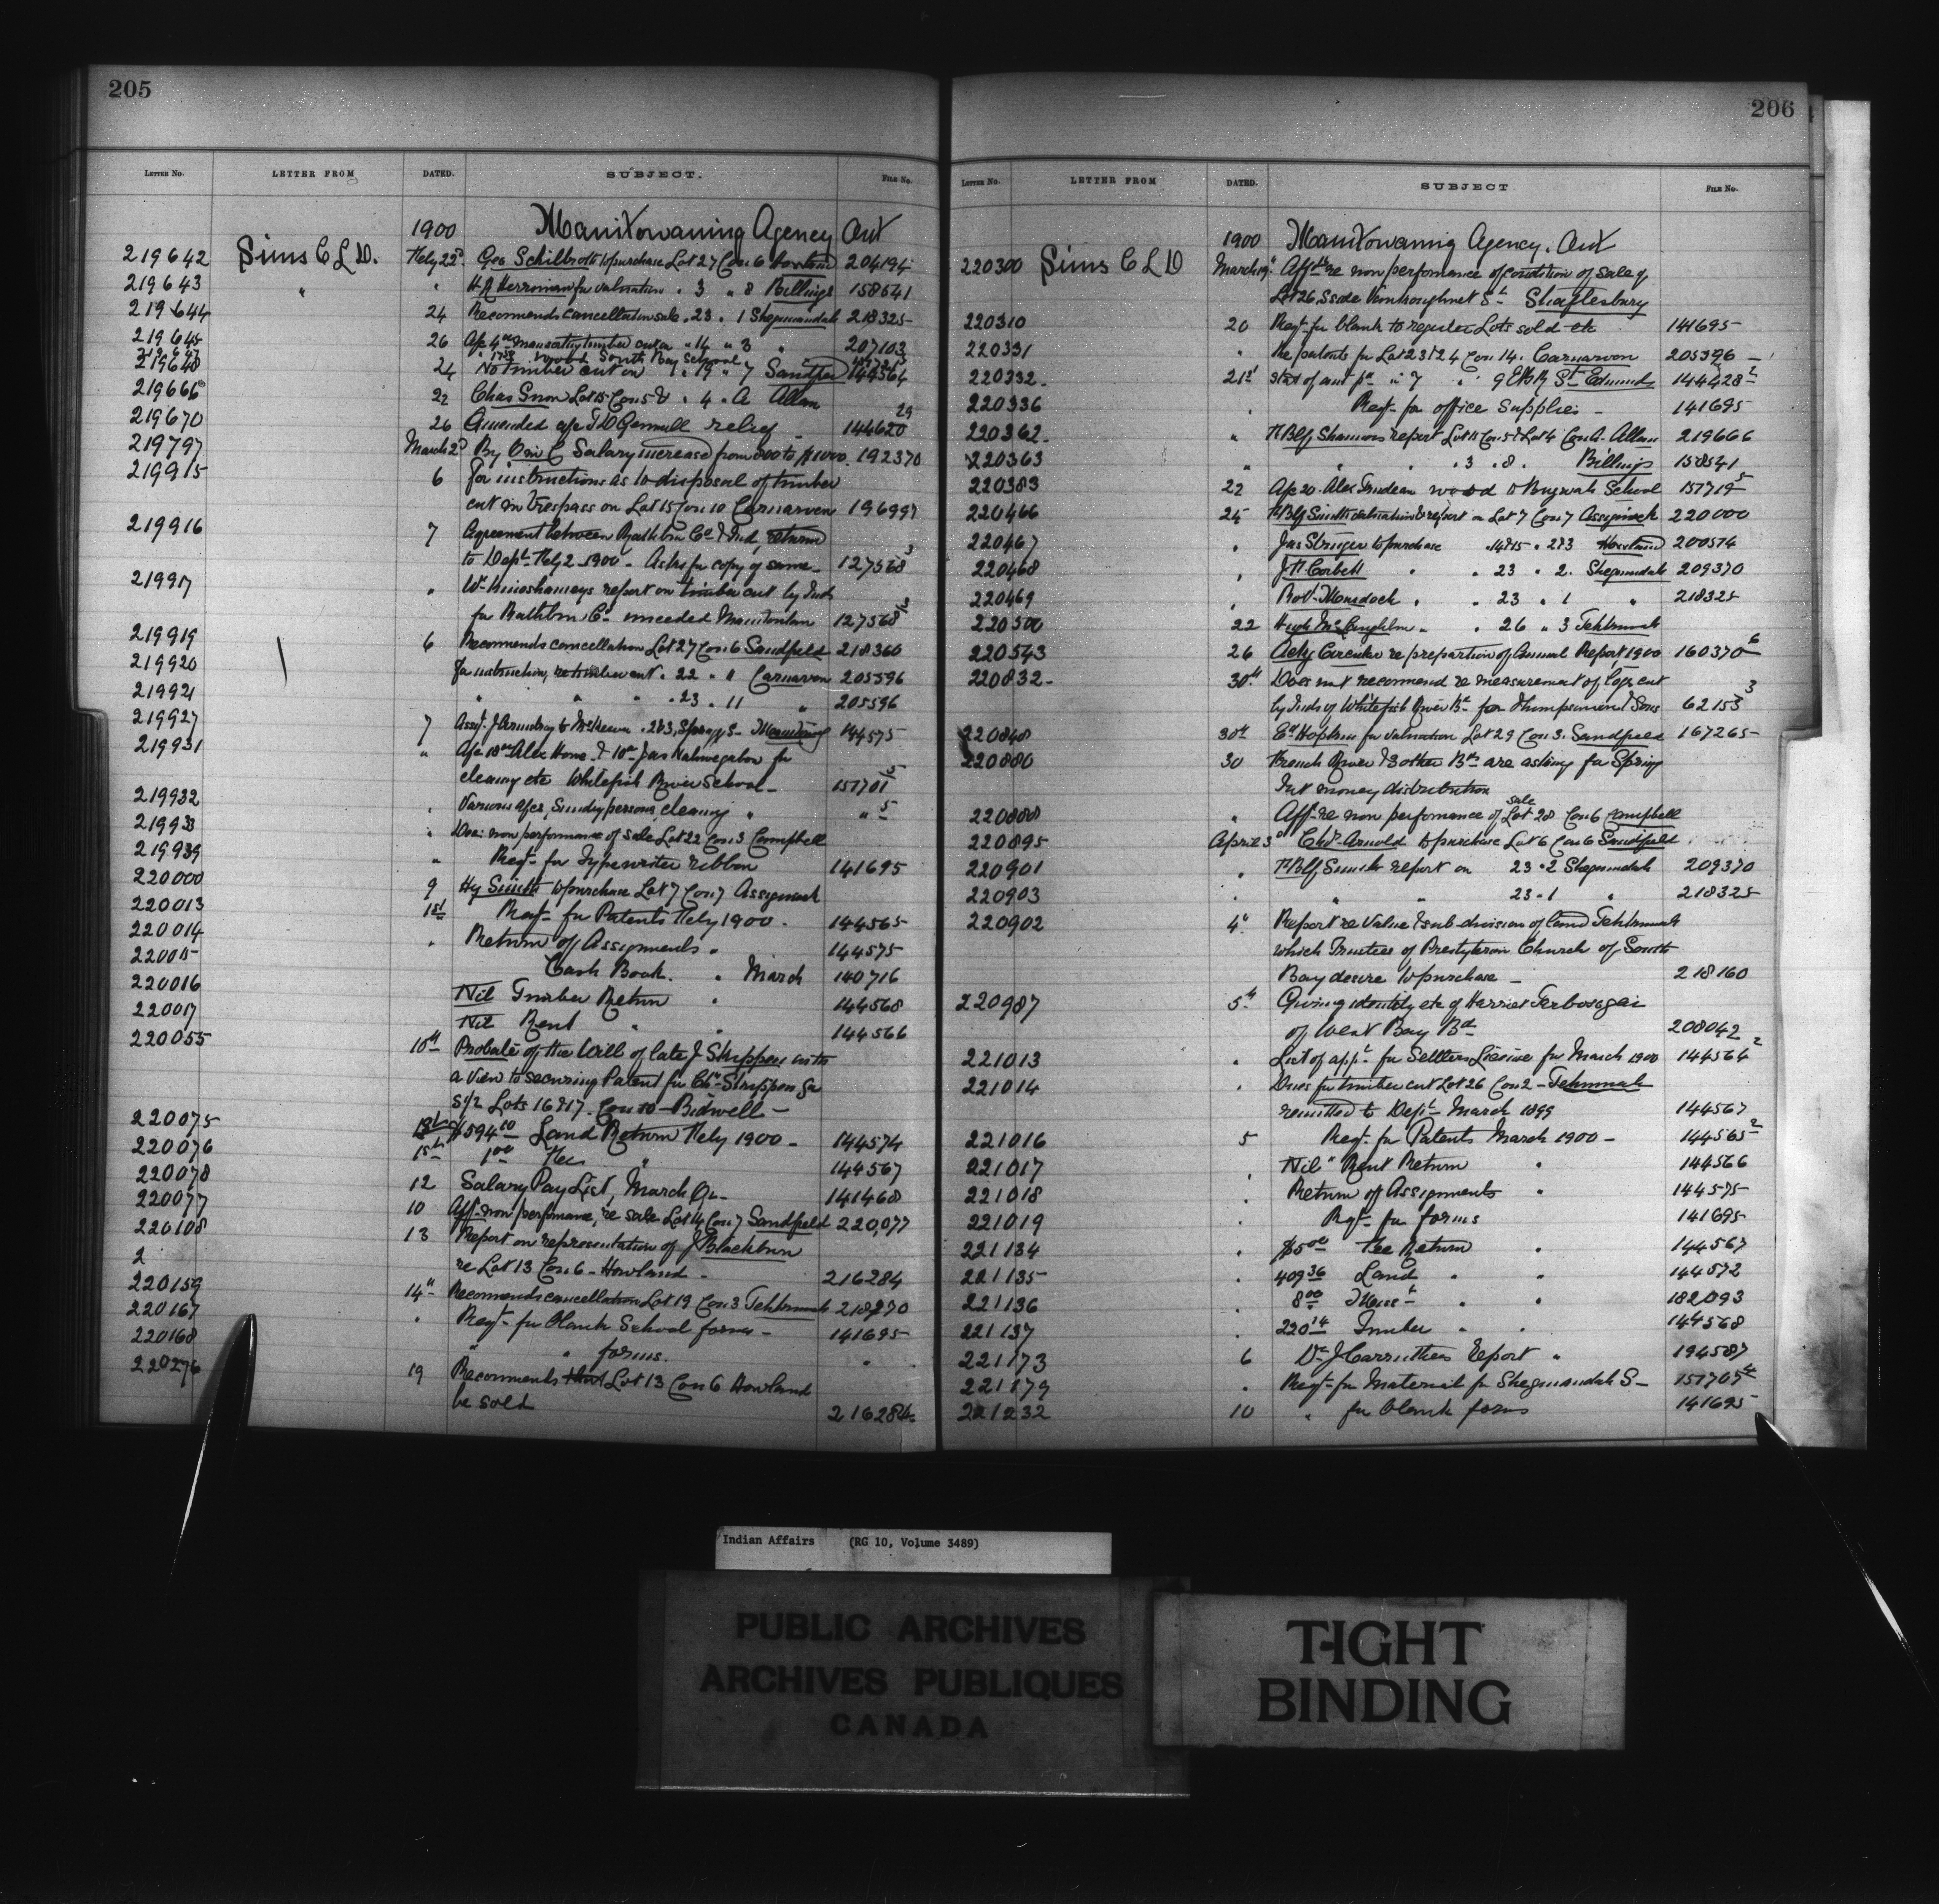 205
LETTER No. LETTER FROM DATED. SUBJECT. FILE No.
1900 Manitowaning Agency Ont
219642 Sims C L D. Feby 22d Geo Schilbroth to purchase Lot 27 Con 6 204194
219643 " " H A Herriman for valuation " 3 " 8 Billings 158541
219644 24 Recommends cancellation sale " 23 " 1 Sheguiandah 218325
219645 26 " 14 " 3 " 207103
wood South Bay School
219648 24 No timber cut on " 19 " 7 144564
219666 22 Chas Lot 15 Con 5 & " 4 " A Allan
219670 26 Amended T D Gemmill relief 144620 29
219797 March 2d By O in C Salary increased from 800 to $1000. 192370
219915 6 For instructions as to disposal of timber
cut in trespass on Lot 15 Con 10 Carnarvon 196997
219916 7 Agreement between Rathbun Co & Ind, return
to Dept Feby 2 1900 - Asks for copy of same - 127568 3
219917 " report on timber cut by Inds
for Rathbun Co unceded Manitoulin 127568
219919 6 Recommends cancellation Lot 27 Con 6 Sandfield 218360
219920 For instruction, re timber cut " 22 " 11 Carnarvon 205596
219921 " " " 23 " 11 " 205596
219927 7 144575
219931 " for
cleaning etc Whitefish River School - 151701 5
219932 " Various sundry persons, cleaning " " 5
219933 " non performance of sale Lot 22 Con 3 Campbell
219939 " Reqt for Typewriter ribbon 141695
220000 9 Hy Smith to purchase Lot 7 Con 7 Assiginack
220013 1st Reqt for Patents Feby 1900 - 144565
220014 " Return of Assignments " 144575
220015 Cash Book. " March 140716
220016 Nil Timber Return " 144568
220017 Nil Rent " " 144566
220055 10th Probate of the Will of late J Shipper with
a view to securing Patent for
S 1/2 Lots 16 & 17 Con 10 - Bidwell -
220075 $594 10 Land Return Feby 1900 - 144574
220076 1st 1 00 Fee " 144567
220078 12 Salary Pay List, March Qr - 141468
220077 10 Afft non performance, re sale Lot 14 Con 7 Sandfield 220,077
220108 13 Report on representation of J Blackburn
2 re Lot 13 Con 6 - Howland - 216284
220159 14th Recommends cancellation Lot 19 Con 3 Tehkummah 218270
220167 " Reqt for blank School forms - 141695
220168 " " forms. "
220276 19 Recommends that Lot 13 Con 6 Howland
be sold 216284
206
LETTER No. LETTER FROM DATED. SUBJECT FILE No.
1900 Manitowaning Agency. Ont
220300 Sims C L D March 19th Affts re non perfomance of condition of sale of
Lot 26, S side Vankoughnet St Shaftesbury
220310 20 Reqt for blank to register Lots sold etc 141695
220331 " Re patents for Lot 23 & 24 Con 14. Carnarvon 205396
220332 21st St Edmunds 144428 2
220336 " Reqt for office Supplies - 141695
220362 " report Lot 15 Con 5 & Lot 4 Con A. Allan 219666
220363 " " " 3 " 8 " Billings 158541
220383 22 Alex Trudeau wood to School 151719 5
220466 24 Smith valuation & report on Lot 7 Con 7 Assiginack 220000
220467 " Jas Stringer to purchase " 14 & 15 " 2 & 3 Howland 200574
220468 " J H Corbett " " 23 " 2. Sheguiandah 209370
220469 " Robt Murdock " " 23 " 1 " 218325
220500 22 Hugh McLaughlin " " 26 " 3 Tehkummah
220543 26 Circular re prepartion of Annual Report, 1900 160370 6
220832 30th Does not recommend re measurement of logs cut
by Inds of Whitefish River Bd for Thompson and Sons 62153 3
220848 30th Hopkins for valuation Lot 29 Con 3. Sandfield 167265
220880 30 French River & 3 other Bds are asking for Spring
Int money distribution
220888 " Afft re non perfomance of sale Lot 28 Con 6 Campbell
220895 April 3d Arnold to purchase Lot 6 Con 6 Sandfield
220901 " Smith report on 23 " 2 Sheguiandah 209370
220903 " " " 23 " 1 " 218325
220902 4th Report re Value & sub-division of land Tehkummah
which Trustees of Presbyterian Church of South
Bay desire to purchase - 218160
220987 5th Giving identity etc of Harriet
of West Bay Bd 208042
221013 " List of appts for Settlers License for March 1900 144564 2
221014 " Dues for timber cut Lot 26 Con 2 - Tehkummah
remitted to Dept March 1899 144567
221016 5 Reqt for Patents March 1900 - 144565 2
221017 " Nil Rent Return " 144566
221018 " Return of Assignments " 144575
221019 " Rqt for forms 141695
221134 " $5 00 Fee Return " 144567
221135 " 409 36 Land " " 144572
221136 " 8 00 " " 182093
221137 " 220 14 Timber " " 144568
221173 6 Dr J Carruthers Report " 194587
221179 " Reqt for Material for Sheguiandah S - 151707
221232 10 " for blank forms 141695
Indian Affairs (RG 10, Volume 3489)
PUBLIC ARCHIVES
ARCHIVES PUBLIQUES
CANADA
TIGHT
BINDING